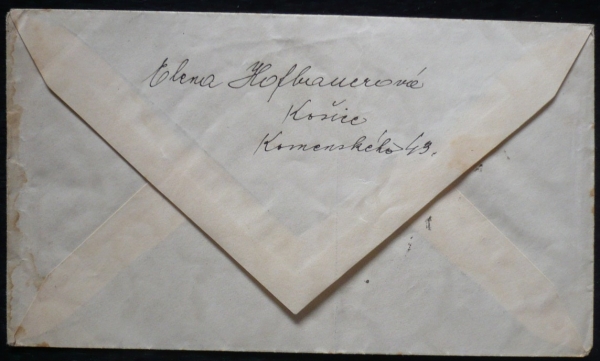 Elena Hofbauerová
Košice
Komenského 43.